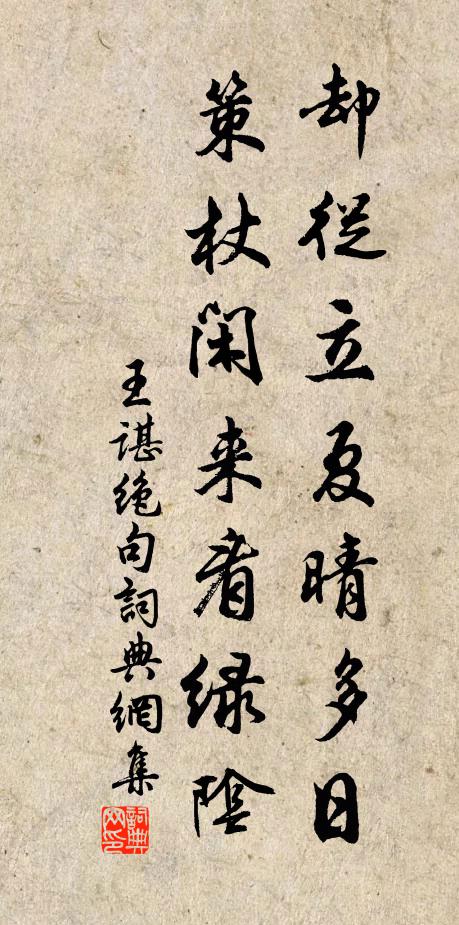 却從立夏晴多日
策杖閑来看緑陰
王諶絶句詞典網集
詞典
网印